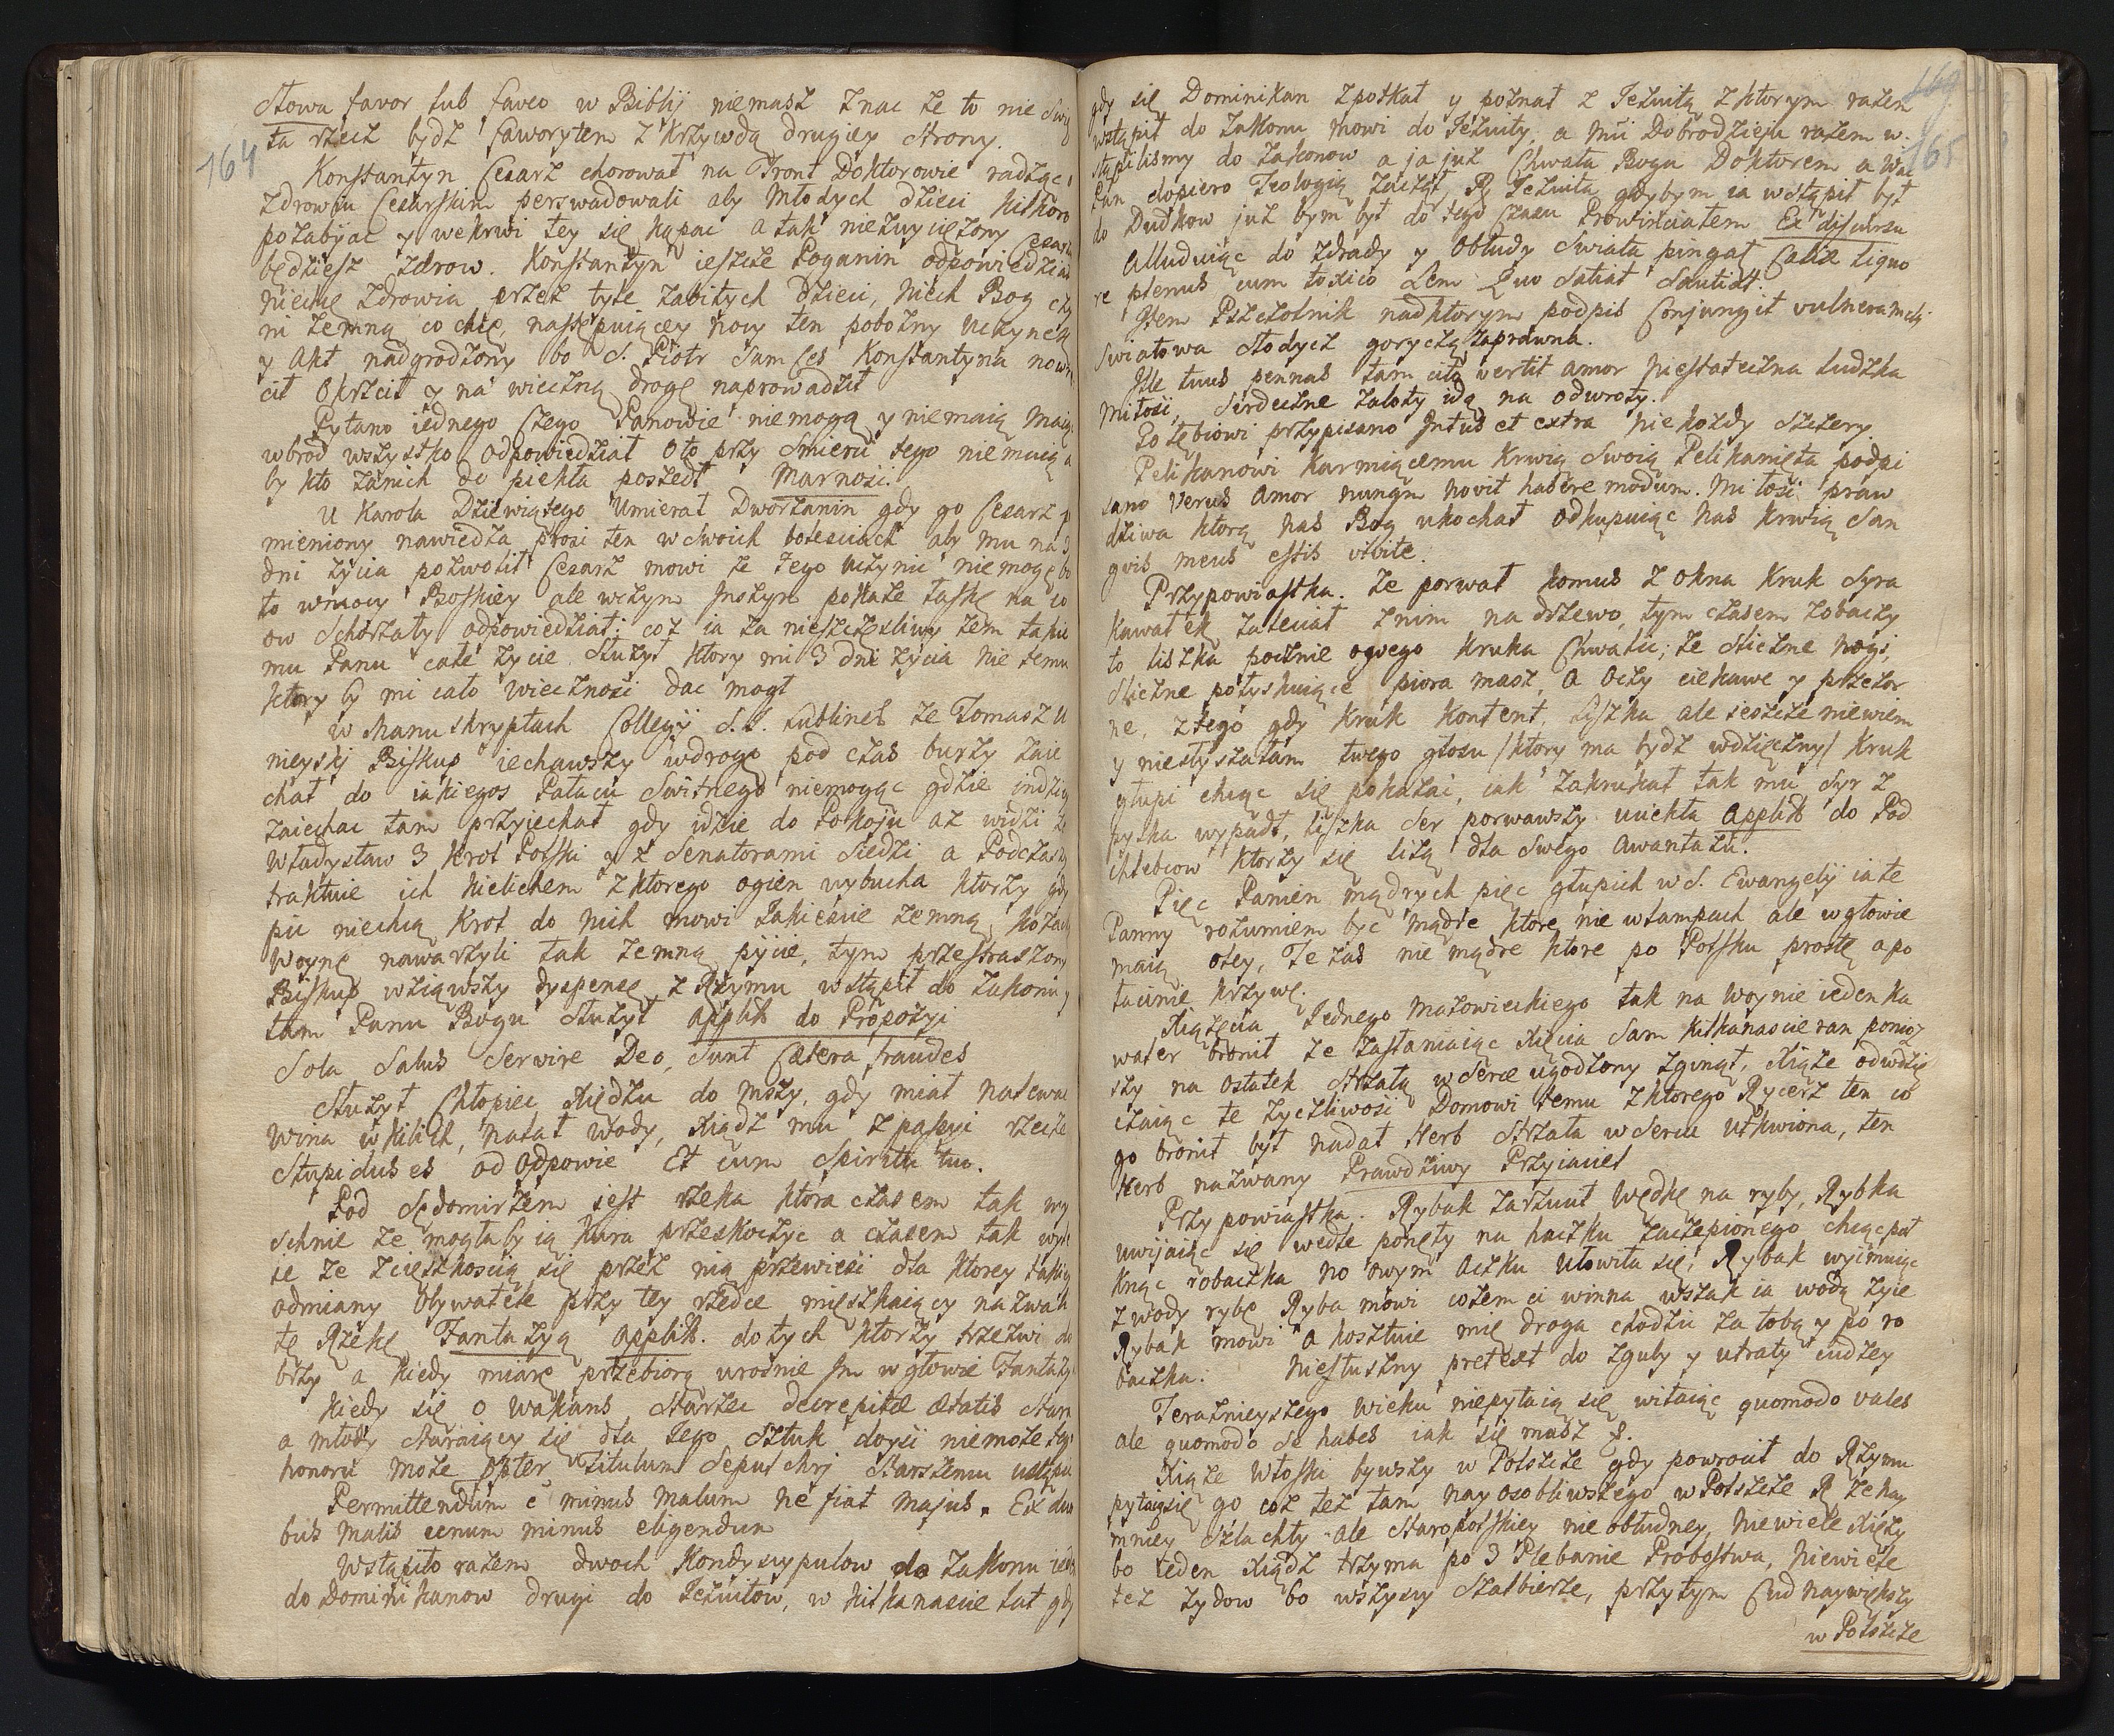 164
Słowa favor lub faveo w Biblij niemasz znac ze to nie Swię
ta rzecz bydz faworytem z krzywdą drugiey strony.
Konstantyn Cesarz chorował na Tront Doktorowie radząc o
zdrowiu Cesarskim perswadowali aby młodych dzieci kilkoro
pozabijac y wekrwi tey się kąpac a tak niezwyciężony Cesarzu
będziesz zdrow. Konstantyn ieszcze Poganin odpowiedział
niechcę zdrowia przez tyle zabitych dzieci, niech Bog czy
ni zemną co chce, następuiącey nocy ten pobożny uczynek
y Akt nadgrodzony bo S. Piotr Sam Ces Konstantyna nawro
cił okrzcił y na wieczną drogę naprowadził
Pytano iednego czego Panowie niemogą y niemaią maiąc
wbrod wszystko odpowiedział oto przy Smierci tego niemaią a
by kto zanich do piekła poszedł Marnosc.
U Karola Dziewiątego Umierał Dworzanin gdy go Cesarz po
mieniony nawiedza prosi ten wswoich bolesciach aby mu na 3
dni zycia pozwolił Cesarz mowi ze tego uczynic niemogę bo
to wmocy Boskiey ale wczym inszym pokaze łaskę na co
ow Schorzały odpowiedział; coz ia za nieszczęsliwy zem takie
mu Panu całe zycie Służył ktory mi 3 dni zycia nie temu
ktory by mi cało wiecznosc dac mogł
w Manuskryptach Collegij S.J. Lublines ze Tomasz U
nieyski Biskup iechawszy wdrogę pod czas burzy zaie
chał do iakiegos Pałacu Swietnego niemogąc gdzie indziey
zaiechac tam przyiechał gdy idzie do Pokoju az widzi ze
Władysław 3 Krol Polski y z Senatorami Siedzi a Podczaszy
traktuie ich kielichem z ktorego ogien wybucha ktorzy gdy
pic niechcą Krol do nich mowi Jakiescie zemną Kozacką
Woynę nawarzyli tak zemną pijcie, tym przestraszony
Biskup wziąwszy dyspensę z Rzymu wstąpił do Zakonu y
tam Panu Bogu Służył applik do Propozyi
Sola Salus Servire Deo, Sunt Cætera fraudes
Służył Chłopiec Xiędzu do Mszy, gdy miał nalewac
wina w kilich, nalał wody, Xiądz mu z passyi rzecze
Stupidus es od odpowie Et cum Spiritu tuo.
Pod Sędomirzem iest rzeka ktora czasem tak wy
schnie ze mogłaby ią kura przeskoczyc a czasem tak wyle
ie ze zcięszkoscią się przez nią przewiesc dla ktorey takiey
odmiany Obywatele przy tey rzedce mięszkaiący nazwali
tę Rzekę Fantazyą applik. do tych ktorzy trzezwi do
brzy a kiedy miarę przebiorą urosnie im w głowie Fantazya
Kiedy się o wakans Starzec decrepitæ ætatis stara
a młody staraiący się dla Jego sztuk doysc niemoze tego
honoru moze ppter titulum Sepulchri Starszemu ustąpic
Permittendum ē minus malum ne fiat majus. Ex duo
bus malis unum minus eligendum
Wstąpiło razem dwoch Kondyscypułow do Zakonu ieden
do Dominikanow drugi do Jezuitow, w kilkanascie lat gdy
169
165
gdy się Dominikan zpotkał y poznał z Jezuitą z ktorym razem
wstąpił do Zakonu mowi do Jezuity, a Mci Dobrodzieju razem w
stąpilismy do Zakonow a ja juz Chwała Bogu Doktorem a Wac
Pan dopiero Teologią zaczął, R. Jezuita gdybym ia wstąpił był
do Dudkow juz bym był do tego czasu Prowincialem Ex discursu
Alluduiąc do zdrady y obłudy Swiata pingat Calix ligno
re plenus cum toxico Lem Quo Satiat Sautiat.
Item Pszczolnik nadktorym podpis Conjungit vulnera melli
Swiatowa słodycz goryczą zaprawna.
Ille tuus pennas tam cito vertit amor Niestateczna ludzka
Miłosc, Serdeczne zaloty idą na odwroty.
Gołębiowi przypisano Intus et extra niekozdy Szczery
Pelikanowi karmiącemu krwią Swoią Pelikanięta podpi
sano Verus amor nunqm novit habere modum. Miłosc praw
dziwa ktorą nas Bog ukochał odkupuiąc nas krwią San
gvis meus estis vivite.
Przypowiastka. ze porwał komus z okna kruk Syra
kawałek zaleciał znim na drzewo, tym czasem zobaczy
to liszka pocznie ogoego kruka Chwalic, ze sliczne nogi,
sliczne połyskuiące piora masz, a oczy ciekawe y przezor
ne, z tego gdy kruk kontent, Liszka ale ieszcze niewiem
y niesłyszałam twego głosu /ktory ma bydz wdzięczny/ Kruk
głupi chcąc się pokazac, iak zakrukał tak mu Syr z
pyska wypadł, liszka Ser porwawszy uciekła applik do Pod
chlebcow ktorzy się liżą dla swego Awantazu.
Pięc Panien mądrych pięc głupich w S. Ewangelij ia te
Panny rozumiem byc mądre ktore nie wlampach ale wgłowie
maią oley, Te zas nie mądre ktore po Polsku proste a po
łacinie krzywe.
Xiążęcia Jednego Mazowieckiego tak na Woynie ieden ka
waler bronił ze zasłaniaiąc Xięcia Sam kilkanascie ran ponio
szy na ostatek strzałą w Serce ugodzony zginął, Xiąże odwdzię
czaiąc te zyczliwosc Domowi temu z ktorego Rycerz ten co
go bronił był nadał Herb Strzała w Sercu utkwiona, ten
Herb nazwany Prawdziwy Przyiaciel
Przypowiastka. Rybak zarzucił Wędkę na ryby, Rybka
uwijaiąc się wedle ponęty na haczku zaczepionego chcąc poł
knąc robaczka no owym aczku ułowiła się, Rybak wyimuiąc
z wody rybę Ryba mowi cozem ci winna wszak ia wodą zyie
Rybak mowi a kosztuie mię droga chodzic za tobą y po ro
baczka. Niesłuszny pretext do zguby y utraty cudzey
Teraznieyszego wieku niepytaią się witaiąc quomodo vales
ale quomodo se habes iak się masz §.
Xiąże Włoski bywszy w Polszcze gdy powrocił do Rzymu
pytaiąsię go coz tez tam nayosobliwszego w Polszcze R ze nay
mniey Szlachty ale Staropolskiey nie obłudney, niewiele Xięży
bo ieden Xiądz trzyma po 3 Plebanie Probostwa, niewiele
tez zydow bo wszyscy Szalbierze, przytym Cud naywiększy
w Polszcze